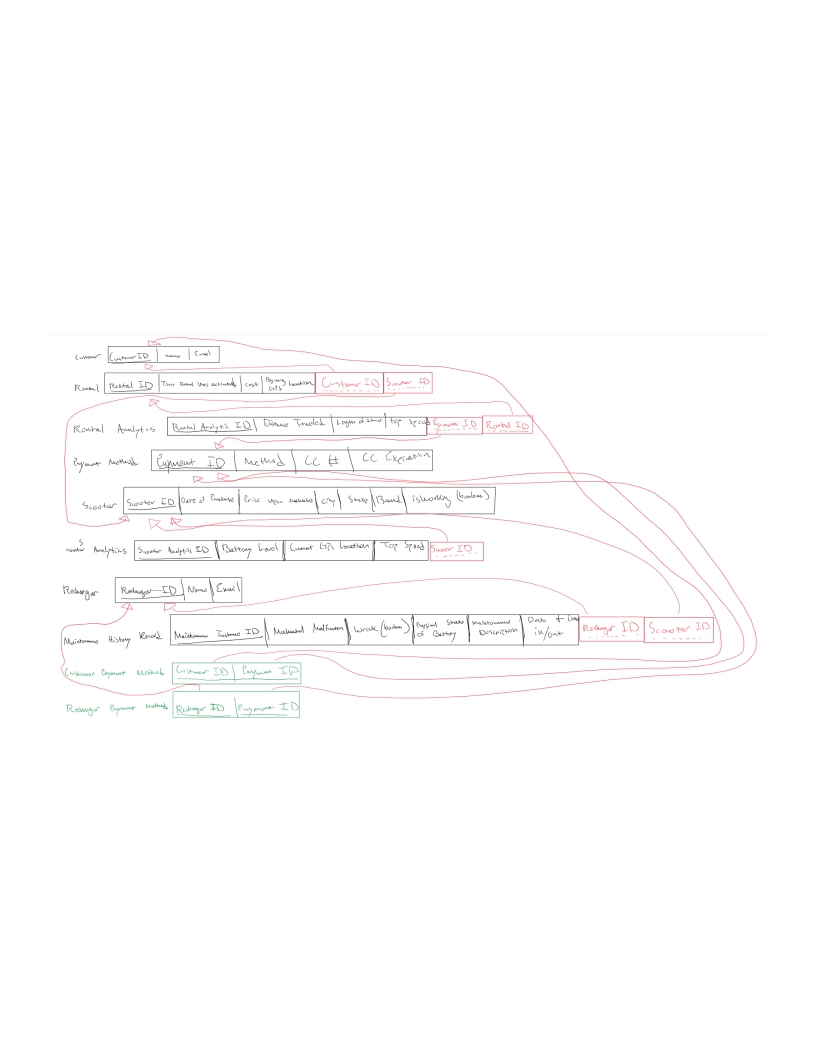 Customer Customer ID name Email
Rental Rental ID Time Rental was activated cost Begining GPS Location Customer ID Scooter ID
Rental Analytics Rental Analytic ID Distance Traveled Length of time top speed Payment ID Rental ID
Payment Method Payment ID Method CC # CC Expiration
Scooter Scooter ID Date of Purchase Price upon purchase City State Brand isWorking (boolean)
Scooter Analytics Scooter Analytics ID Battery Level Current GPS Location Top Speed Scooter ID
Recharger Recharger ID Name Email
Maintenance History Record Maintenance Instance ID Mechanical Malfunction Wreck (boolean) Physical State of Battery Maintenance Description Date + time in/out Recharger ID Scooter ID
Customer Payment Methods Customer ID Payment ID
Recharger Payment Methods Recharger ID Payment ID